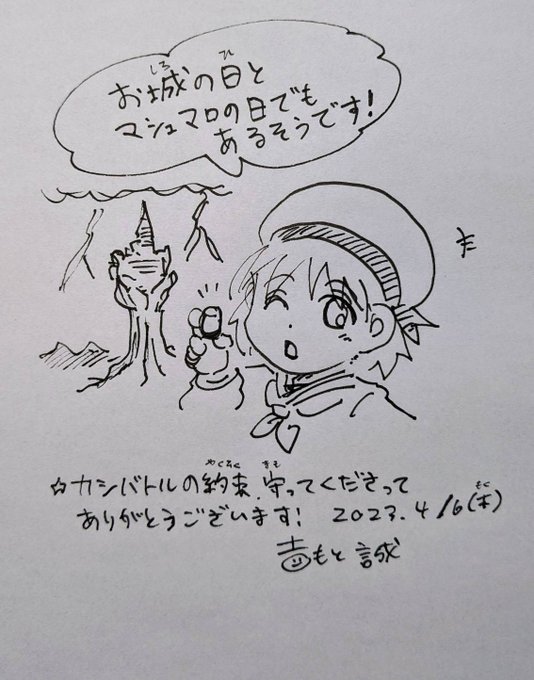 しろ ひ
お城の日と
マシュマロの日でも
あるそうです!
やくそく まも
☆カシバトルの約束、守ってくださって
もく
ありがとうございます! 2023.4/6(木)
吉もと誠